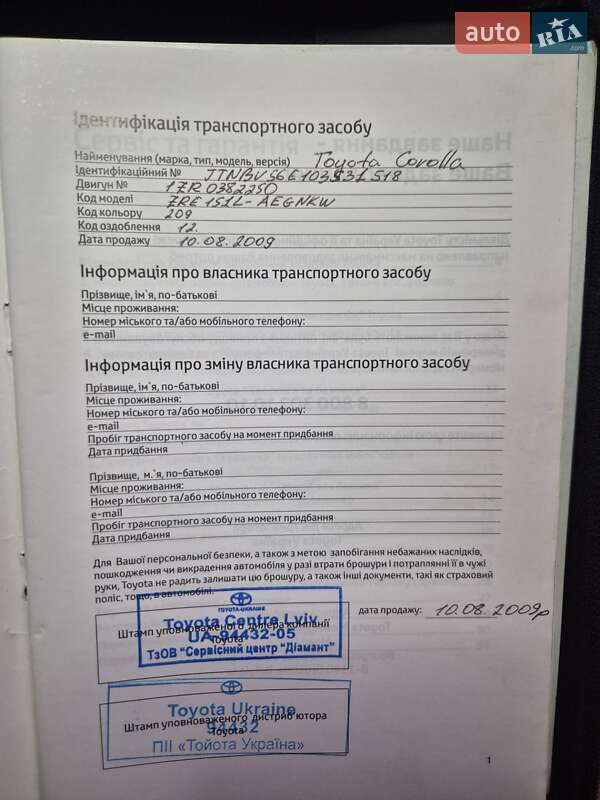 auto RIA .com
Ідентифікація транспортного засобу
Найменування (марка, тип, модель, версія) Toyota Corolla
Ідентифікаційний № JTNBV56E103531518
Двигун № 1ZR0382250
Код моделі ZRE151L-AEGNKW
Код кольору 209
Код оздоблення 12.
Дата продажу 10.08.2009
Інформація про власника транспортного засобу
Прізвище, ім`я, по-батькові
Місце проживання:
Номер міського та/або мобільного телефону:
e-mail
Інформація про зміну власника транспортного засобу
Прізвище, ім`я, по-батькові
Місце проживання:
Номер міського та/або мобільного телефону:
e-mail
Пробіг транспортного засобу на момент придбання
Дата придбання
Прізвище, м.`я, по-батькові
Місце проживання:
Номер міського та/або мобільного телефону:
e-mail
Пробіг транспортного засобу на момент придбання
Дата придбання
Для Вашої персональної безпеки, а також з метою запобігання небажаних наслідків,
пошкодження чи викрадення автомобіля у разі втрати брошури і потраплянні її в чужі
руки, Toyota не радить залишати цю брошуру, а також інші документи, такі як страховий
поліс, тощо, в автомобілі.
TOYOTA-UKRAINE
дата продажу: 10.08.2009р
Toyota Centre Lviv
Штамп уповноваженого дилера компанії
UA 94432-05
Toyota
ТзОВ "Сервісний центр "Діамант"
Toyota Ukraine
Штамп уповноваженого дистриб ютора
94432
Toyota
ПІІ «Тойота Україна»
1